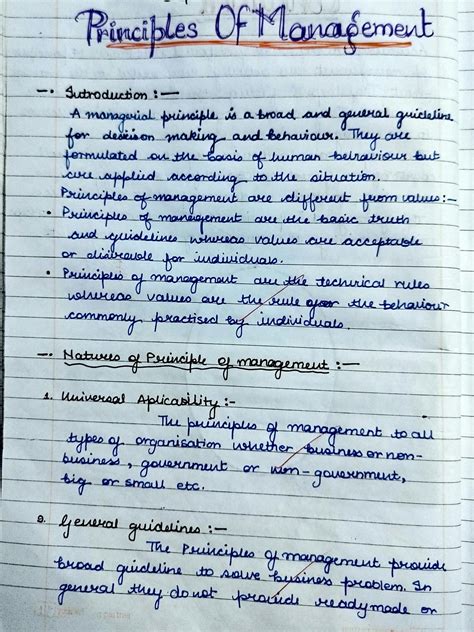 Principles Of Management
—. Introduction :—
A managerial principle is a broad and general guideline
for decision making and behaviour. They are
formulated on the basis of human behaviour but
are applied according to the situation.
Principles of management are different from values:—
• Principles of management are the basic truth
and guidelines whereas values are acceptable
or disireable for individuals.
• Principles of management are the technical rules
whereas values are the rule the behaviour
commonly practised by individuals.
—. Natures of Principle of management :—
1. Universal Aplicability :-
The principles of management to all
types of organisation whether business or non-
business, government or non-government,
big or small etc.
2. General guidelines :—
The Principles of management provide
broad guideline to solve business problem. In
general they do not provide readymade or